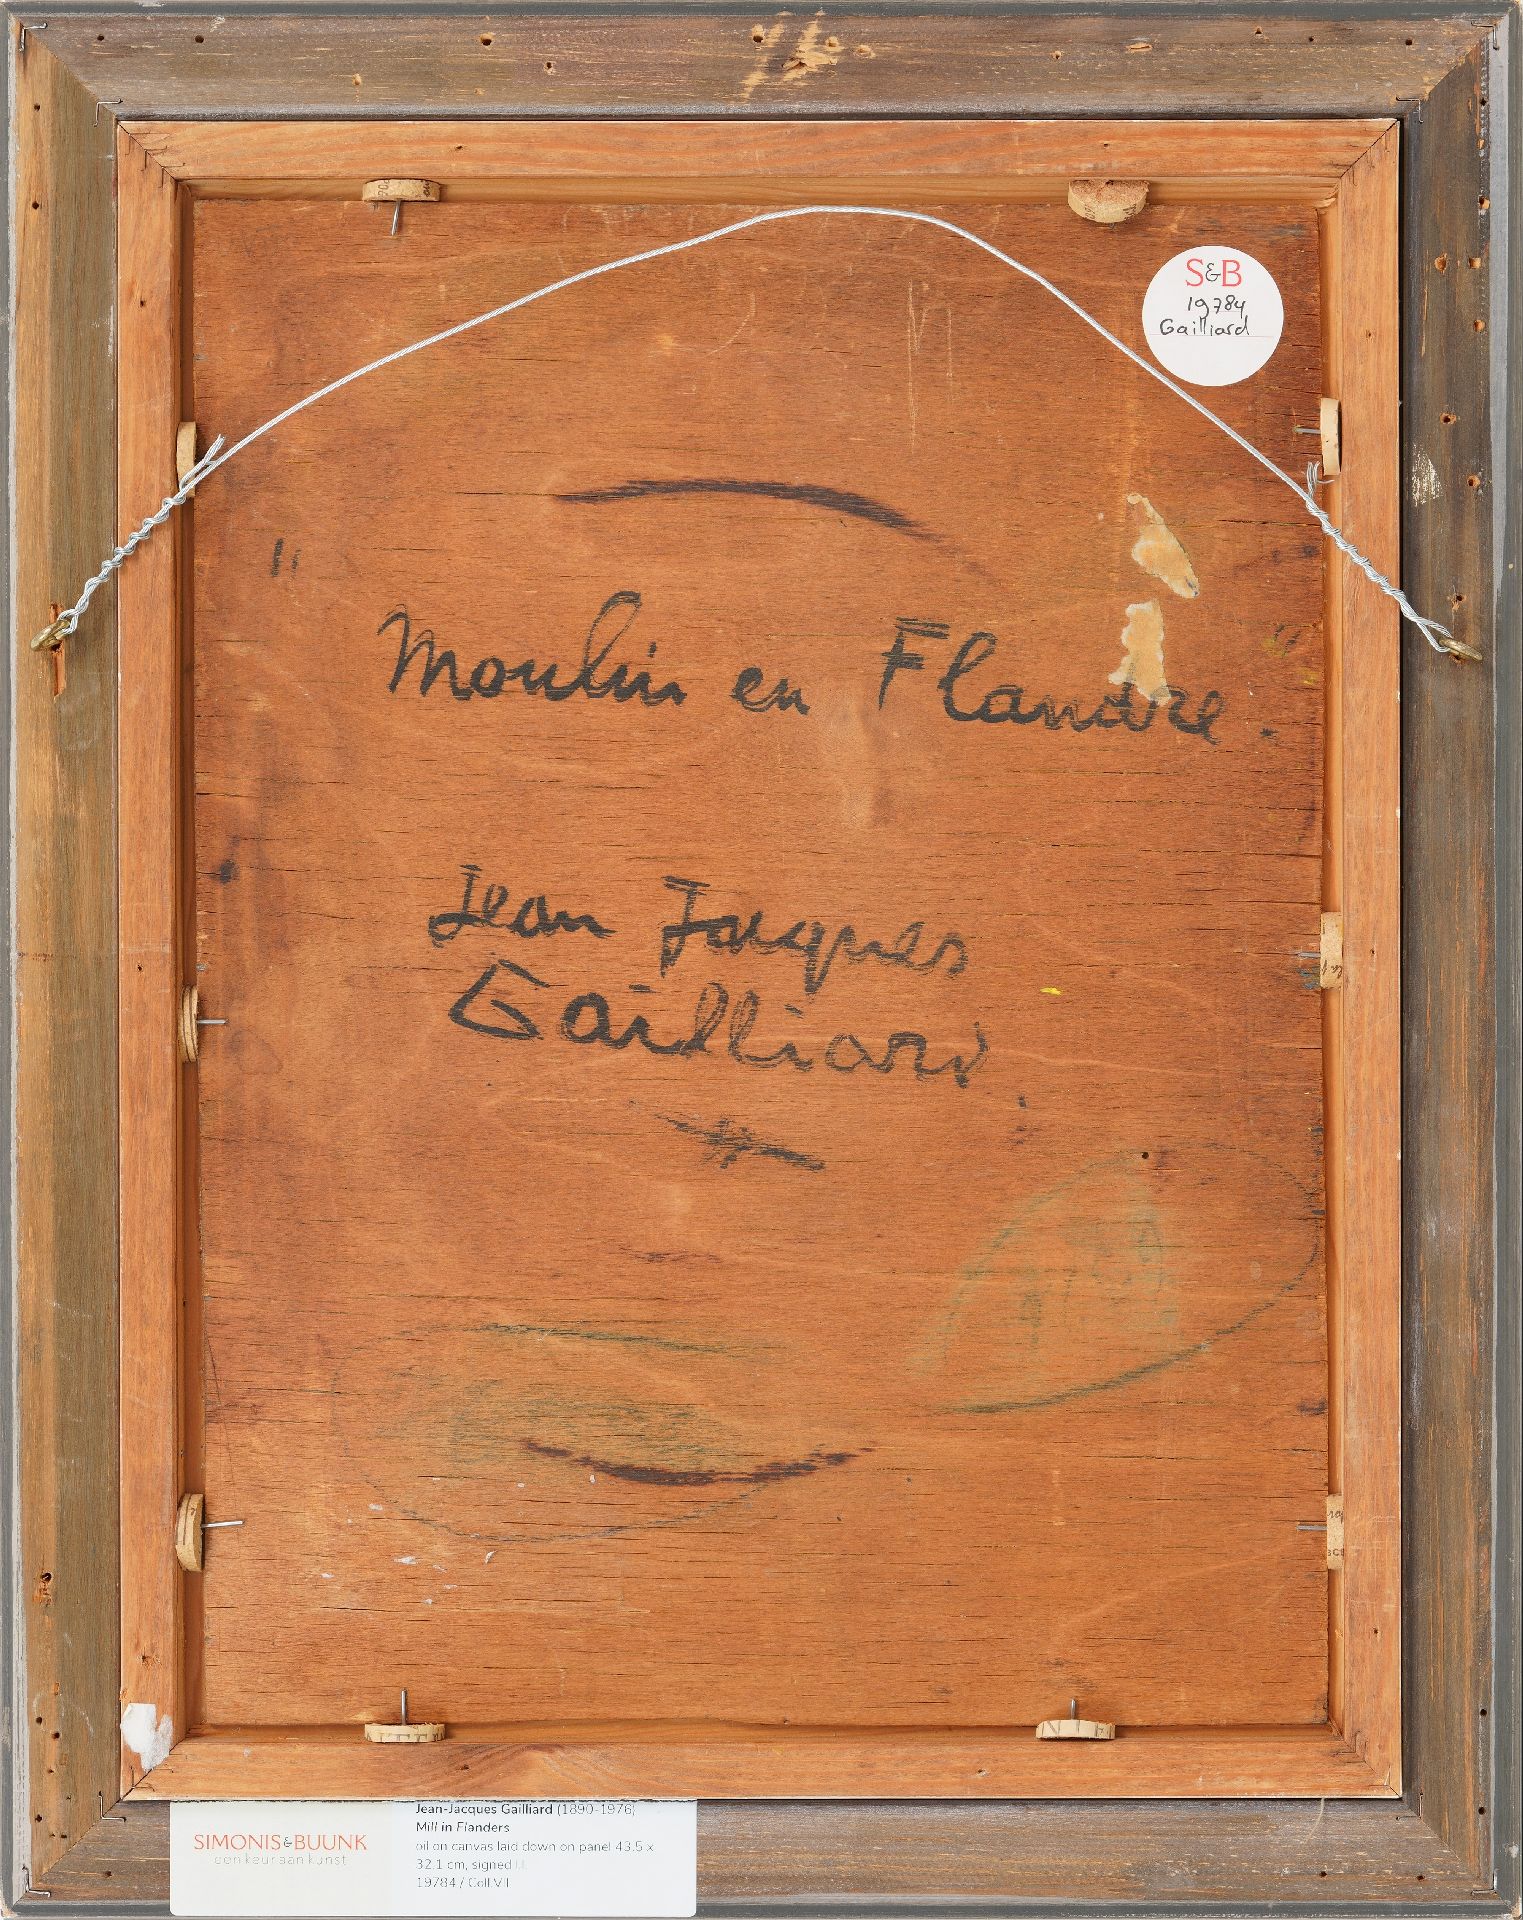 S&B
19784
Gailliard
Moulin en Flandre.
Jean Jacques
Gailliard
SIMONIS&BUUNK
een keur aan kunst
Jean-Jacques Gailliard (1890-1976)
Mill in Flanders
oil on canvas laid down on panel 43.5 x
32.1 cm, signed l.l.
19784 / Coll.VII